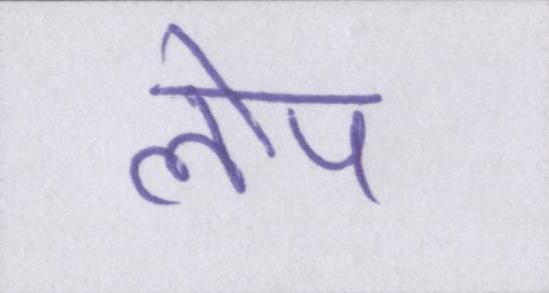 लोप